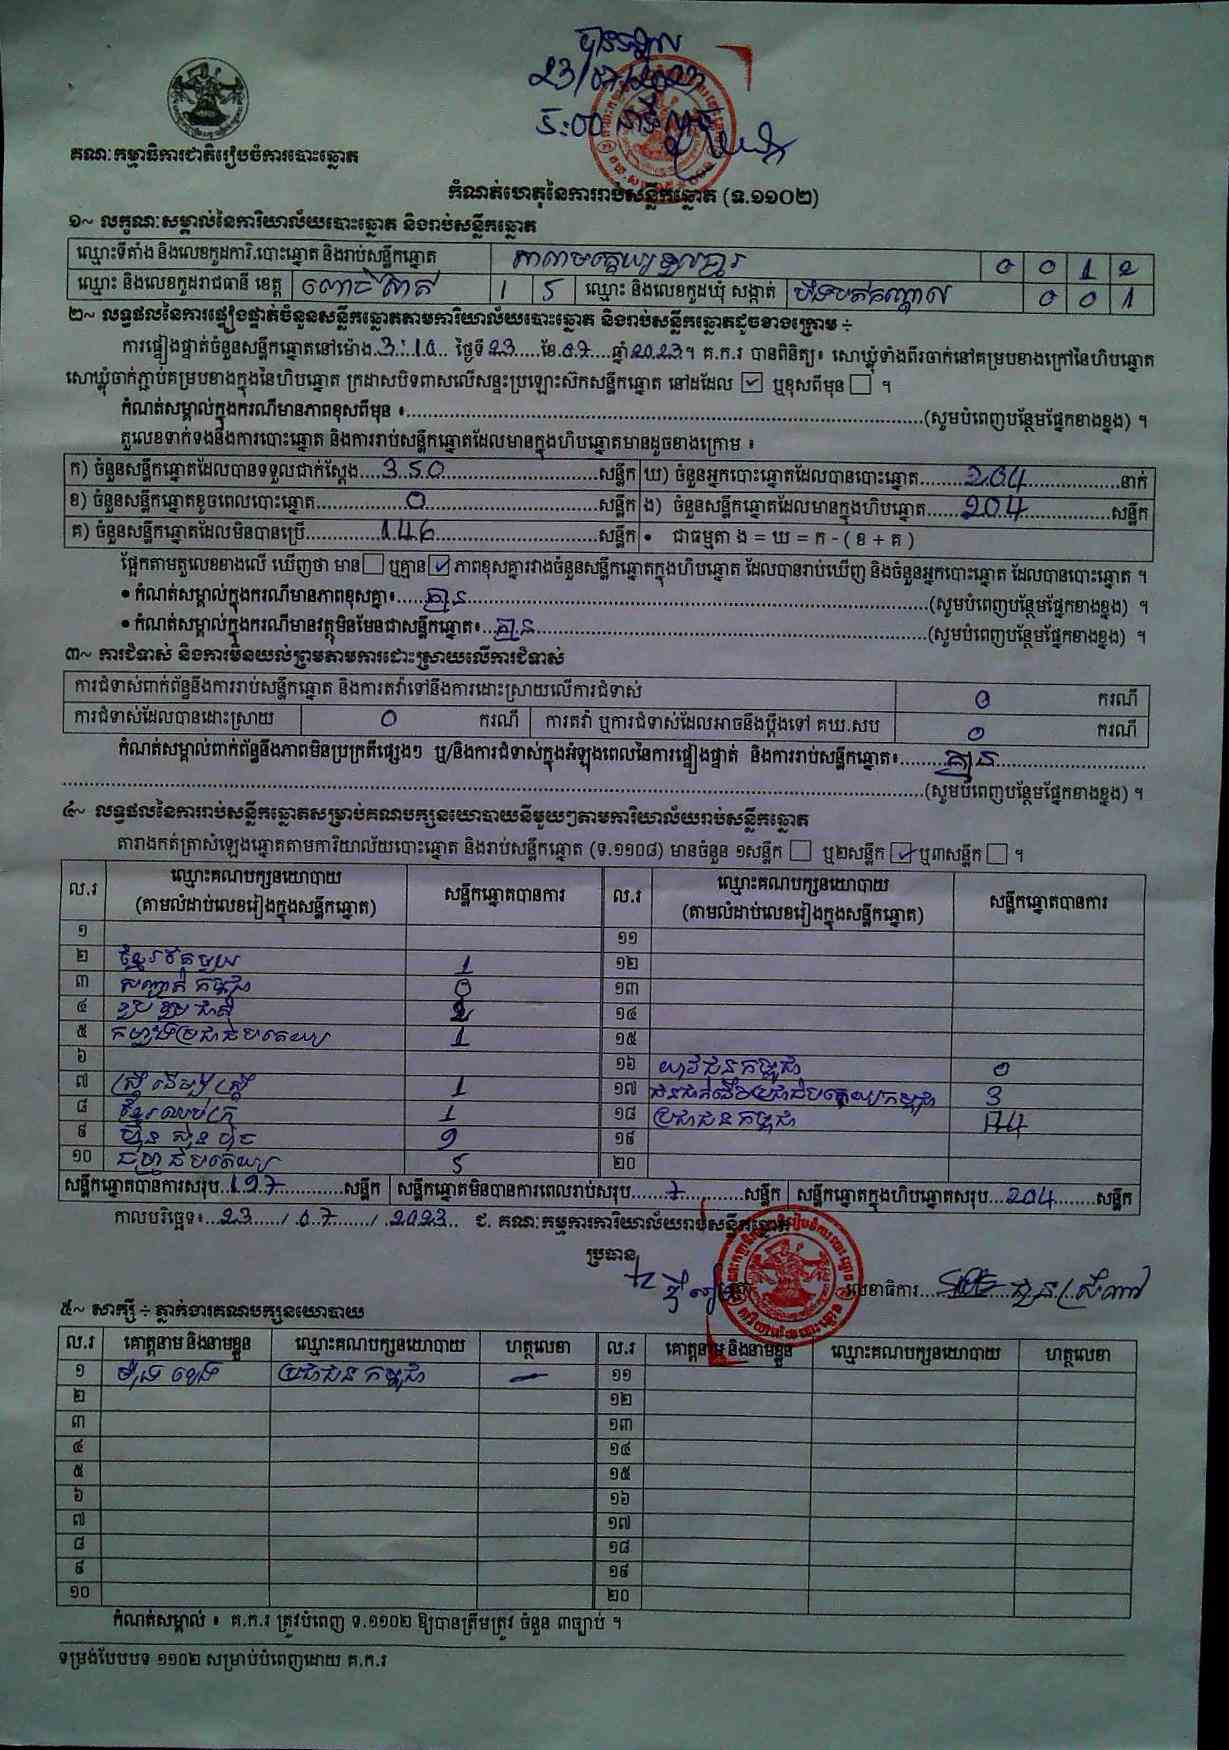 បានទទួល
23/07/2023
5:00 នាទីល្ងាច
គណៈកម្មាធិការជាតិរៀបចំការបោះឆ្នោត
កំណត់ហេតុនៃការរាប់សន្លឹកឆ្នោត (ទ.១១០២)
១~ លក្ខណៈសម្គាល់នៃការិយាល័យបោះឆ្នោត និងរាប់សន្លឹកឆ្នោត
ឈ្មោះទីតាំង និងលេខកូដការិ.បោះឆ្នោត និងរាប់សន្លឹកឆ្នោត 0 0 1 2
ឈ្មោះ និងលេខកូដរាជធានី ខេត្ត ពោធិ៍សាត់ 1 5 ឈ្មោះ និងលេខកូដឃុំ សង្កាត់ បឹងបត់កណ្ដាល 0 0 1
២~ លទ្ធផលនៃការផ្ទៀងផ្ទាត់ចំនួនសន្លឹកឆ្នោតតាមការិយាល័យបោះឆ្នោត និងរាប់សន្លឹកឆ្នោតដូចខាងក្រោម ÷
ការផ្ទៀងផ្ទាត់ចំនួនសន្លឹកឆ្នោតនៅម៉ោង 3:10 ថ្ងៃទី 23 ខែ 07 ឆ្នាំ 2023 ។ គ.ក.រ បានពិនិត្យ៖ សោឃ្លុំទាំងពីរចាក់នៅគម្របខាងក្រៅនៃហិបឆ្នោត
សោឃ្លុំចាក់ភ្ជាប់គម្របខាងក្នុងនៃហិបឆ្នោត ក្រដាសបិទពាសលើសន្ទះប្រឡោះស៊កសន្លឹកឆ្នោត នៅដដែល ☑ ឬខុសពីមុន ☐ ។
កំណត់សម្គាល់ក្នុងករណីមានភាពខុសពីមុន ៖ (សូមបំពេញបន្ថែមផ្នែកខាងខ្នង) ។
តួលេខទាក់ទងនឹងការបោះឆ្នោត និងការរាប់សន្លឹកឆ្នោតដែលមានក្នុងហិបឆ្នោតមានដូចខាងក្រោម ៖
ក) ចំនួនសន្លឹកឆ្នោតដែលបានទទួលជាក់ស្ដែង 350 សន្លឹក ឃ) ចំនួនអ្នកបោះឆ្នោតដែលបានបោះឆ្នោត 204 នាក់
ខ) ចំនួនសន្លឹកឆ្នោតខូចពេលបោះឆ្នោត 0 សន្លឹក ង) ចំនួនសន្លឹកឆ្នោតដែលមានក្នុងហិបឆ្នោត 204 សន្លឹក
គ) ចំនួនសន្លឹកឆ្នោតដែលមិនបានប្រើ 146 សន្លឹក • ជាធម្មតា ង = ឃ = ក - ( ខ + គ )
ផ្អែកតាមតួលេខខាងលើ ឃើញថា មាន ☐ ឬគ្មាន ☑ ភាពខុសគ្នារវាងចំនួនសន្លឹកឆ្នោតក្នុងហិបឆ្នោត ដែលបានរាប់ឃើញ និងចំនួនអ្នកបោះឆ្នោត ដែលបានបោះឆ្នោត ។
• កំណត់សម្គាល់ក្នុងករណីមានភាពខុសគ្នា៖ គ្មាន (សូមបំពេញបន្ថែមផ្នែកខាងខ្នង) ។
• កំណត់សម្គាល់ក្នុងករណីមានវត្ថុមិនមែនជាសន្លឹកឆ្នោត៖ គ្មាន (សូមបំពេញបន្ថែមផ្នែកខាងខ្នង) ។
៣~ ការជំទាស់ និងការមិនយល់ព្រមតាមការដោះស្រាយលើការជំទាស់
ការជំទាស់ពាក់ព័ន្ធនឹងការរាប់សន្លឹកឆ្នោត និងការតវ៉ាទៅនឹងការដោះស្រាយលើការជំទាស់ 0 ករណី
ការជំទាស់ដែលបានដោះស្រាយ 0 ករណី ការតវ៉ា ឬការជំទាស់ដែលអាចនឹងប្ដឹងទៅ គឃ.សប 0 ករណី
កំណត់សម្គាល់ពាក់ព័ន្ធនឹងភាពមិនប្រក្រតីផ្សេងៗ ឬ/និងការជំទាស់ក្នុងអំឡុងពេលនៃការផ្ទៀងផ្ទាត់ និងការរាប់សន្លឹកឆ្នោត៖ គ្មាន
(សូមបំពេញបន្ថែមផ្នែកខាងខ្នង) ។
៤~ លទ្ធផលនៃការរាប់សន្លឹកឆ្នោតសម្រាប់គណបក្សនយោបាយនីមួយៗតាមការិយាល័យរាប់សន្លឹកឆ្នោត
តារាងកត់ត្រាសំឡេងឆ្នោតតាមការិយាល័យបោះឆ្នោត និងរាប់សន្លឹកឆ្នោត (ទ.១១០៨) មានចំនួន ១សន្លឹក ☐ ឬ២សន្លឹក ☑ ឬ៣សន្លឹក ☐ ។
ល.រ ឈ្មោះគណបក្សនយោបាយ (តាមលំដាប់លេខរៀងក្នុងសន្លឹកឆ្នោត) សន្លឹកឆ្នោតបានការ ល.រ ឈ្មោះគណបក្សនយោបាយ (តាមលំដាប់លេខរៀងក្នុងសន្លឹកឆ្នោត) សន្លឹកឆ្នោតបានការ
១ ១១
២ ខ្មែររួបរួម 1 ១២
៣ សញ្ជាតិកម្ពុជា 0 ១៣
៤ ១៤
៥ កម្លាំងប្រជាធិបតេយ្យ 1 ១៥
៦ ១៦ យុវជនកម្ពុជា 0
៧ ស្ត្រីដើម្បីស្ត្រី 1 ១៧ 3
៨ ខ្មែរឈប់ក្រ 1 ១៨ ប្រជាជនកម្ពុជា 174
៩ ហ្វ៊ុនស៊ិនប៉ិច 9 ១៩
១០ 5 ២០
សន្លឹកឆ្នោតបានការសរុប 197 សន្លឹក សន្លឹកឆ្នោតមិនបានការពេលរាប់សរុប 7 សន្លឹក សន្លឹកឆ្នោតក្នុងហិបឆ្នោតសរុប 204 សន្លឹក
កាលបរិច្ឆេទ៖ 23 / 07 / 2023 ជ. គណៈកម្មការការិយាល័យរាប់សន្លឹកឆ្នោត
ប្រធាន
លេខាធិការ
៥~ សាក្សី ÷ ភ្នាក់ងារគណបក្សនយោបាយ
ល.រ គោត្តនាម និងនាមខ្លួន ឈ្មោះគណបក្សនយោបាយ ហត្ថលេខា ល.រ គោត្តនាម និងនាមខ្លួន ឈ្មោះគណបក្សនយោបាយ ហត្ថលេខា
១ ប្រជាជនកម្ពុជា ១១
២ ១២
៣ ១៣
៤ ១៤
៥ ១៥
៦ ១៦
៧ ១៧
៨ ១៨
៩ ១៩
១០ ២០
កំណត់សម្គាល់ ៖ គ.ក.រ ត្រូវបំពេញ ទ.១១០២ ឱ្យបានត្រឹមត្រូវ ចំនួន ៣ច្បាប់ ។
ទម្រង់បែបបទ ១១០២ សម្រាប់បំពេញដោយ គ.ក.រ